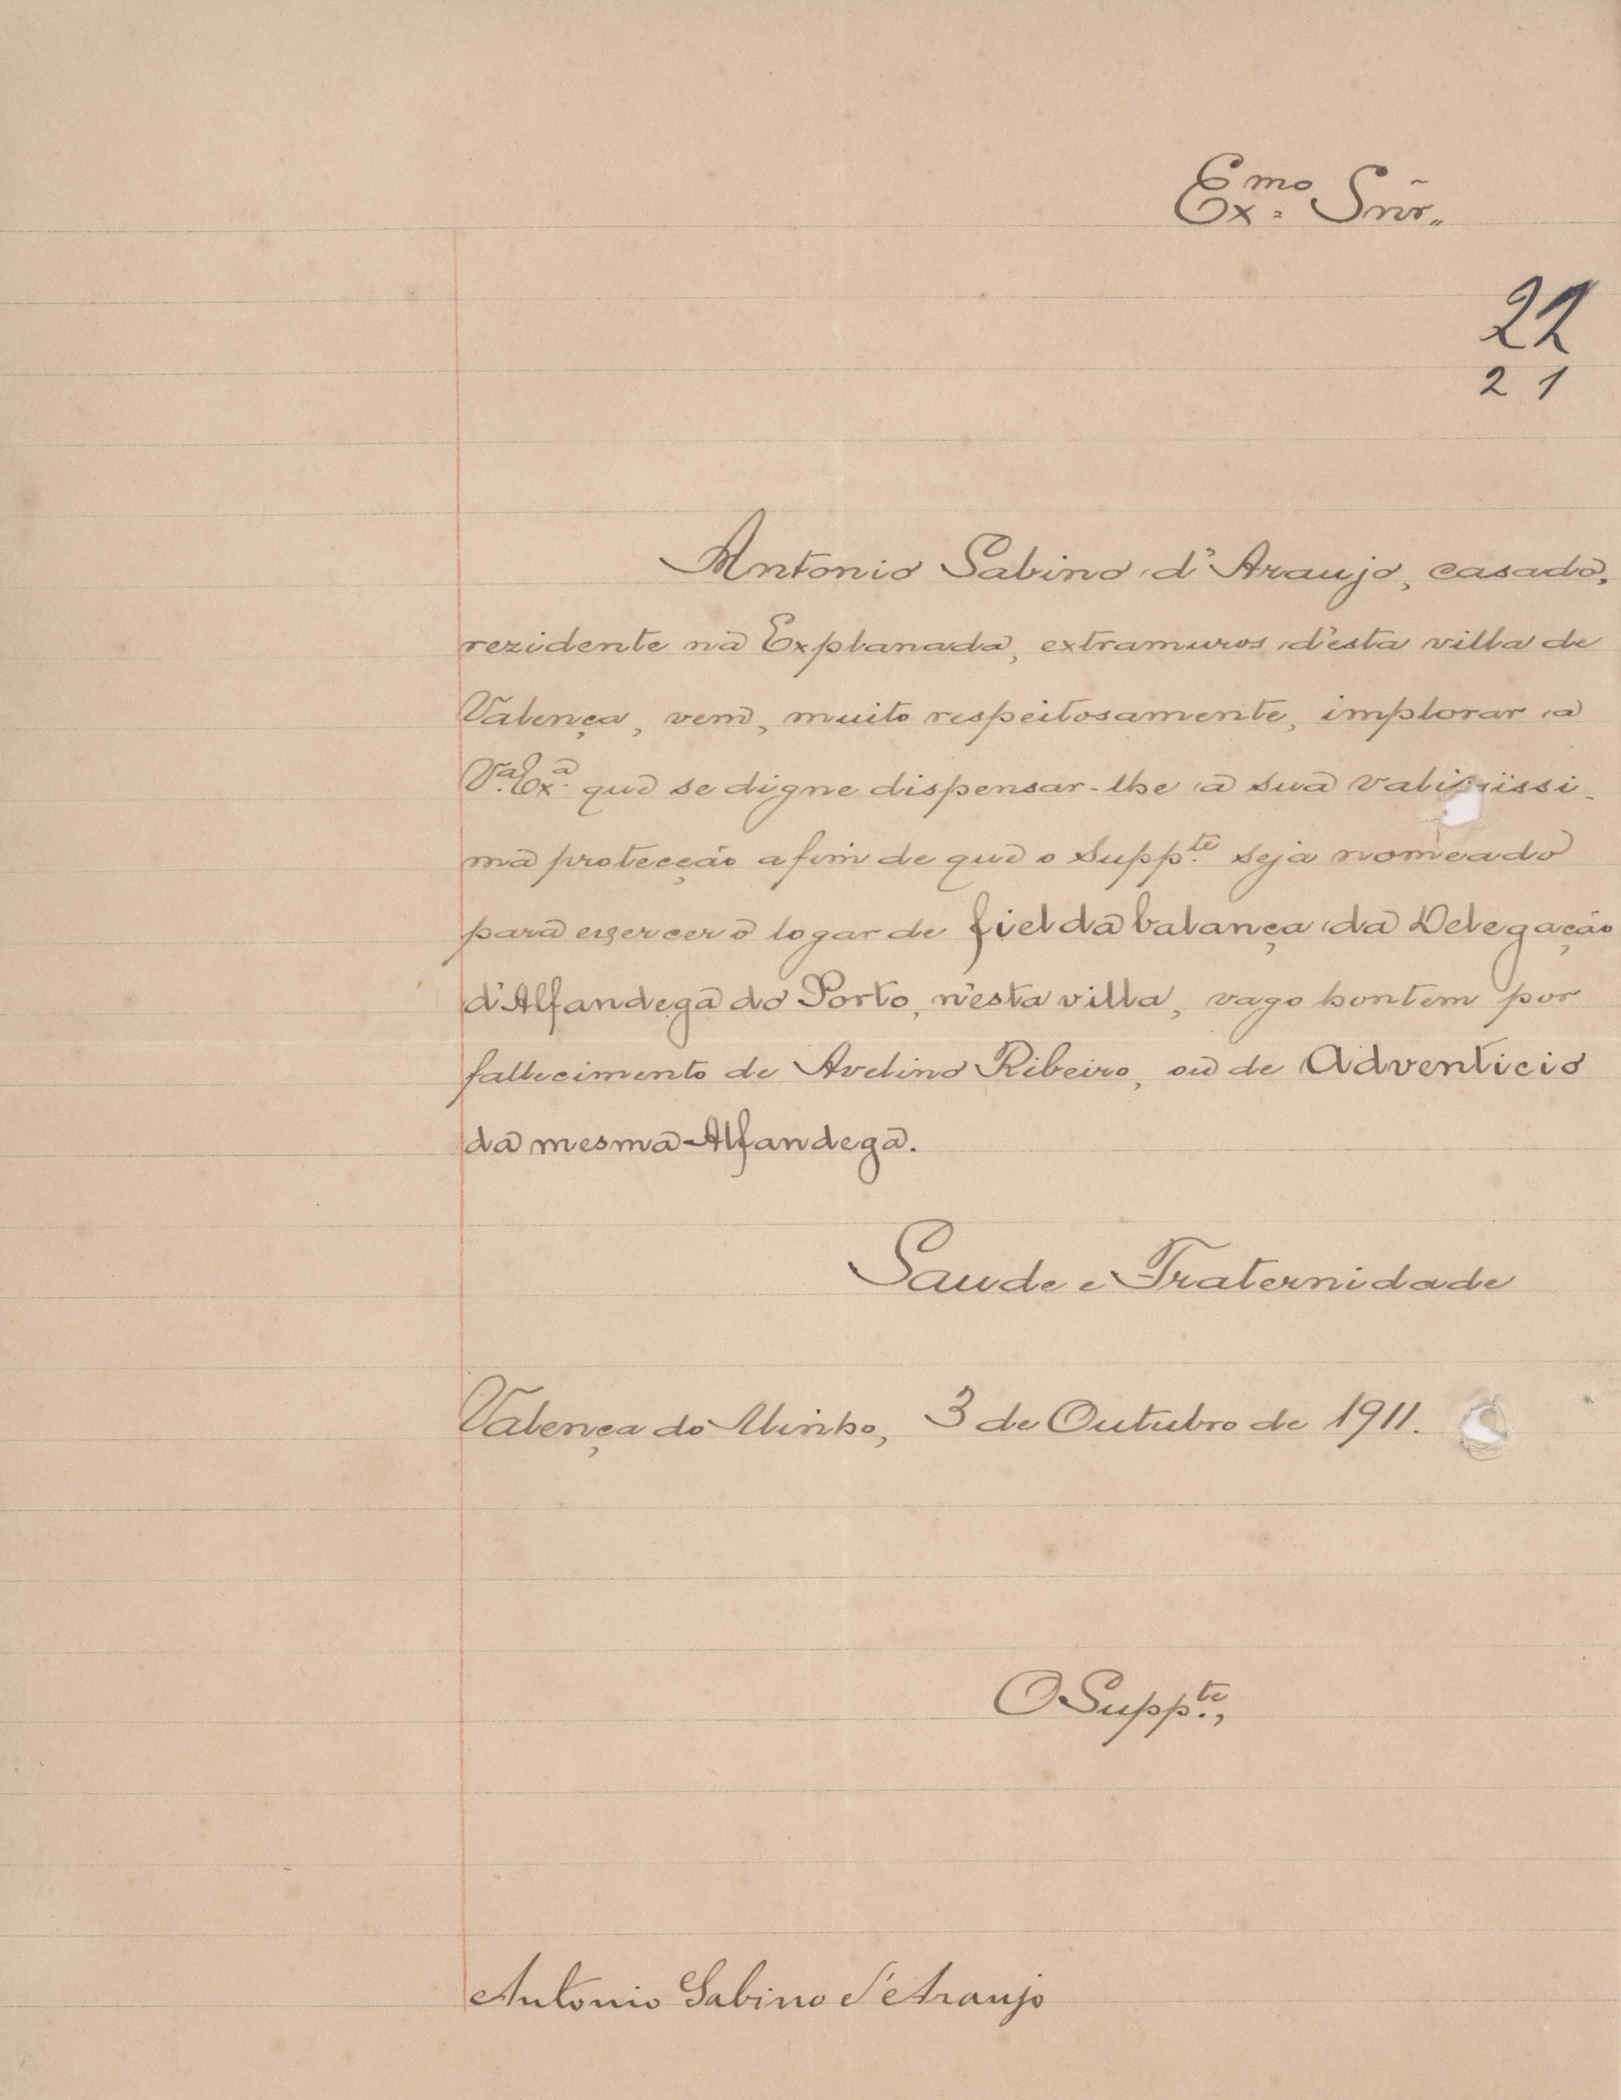 Ex.mo Snr.
22
2 1
Antonio Sabino d'Araujo, casado,
rezidente na Explanada, extramuros d'esta villa de
Valença, vem, muito respeitosamente, implorar a
V.a Ex.a que se digne dispensar-lhe a sua
ma protecção afim de que o Supp.te seja nomeado
para exercer o logar de fiel da balança da Delegação
d'Alfandega do Porto, n'esta villa, vago hontem por
fallecimento de Avelino Ribeiro, ou de Adventicio
da mesma Alfandega.
Saude e Fraternidade
Valença do Minho, 3 de Outubro de 1911.
O Supp.te,
Antonio Sabino d'Araujo